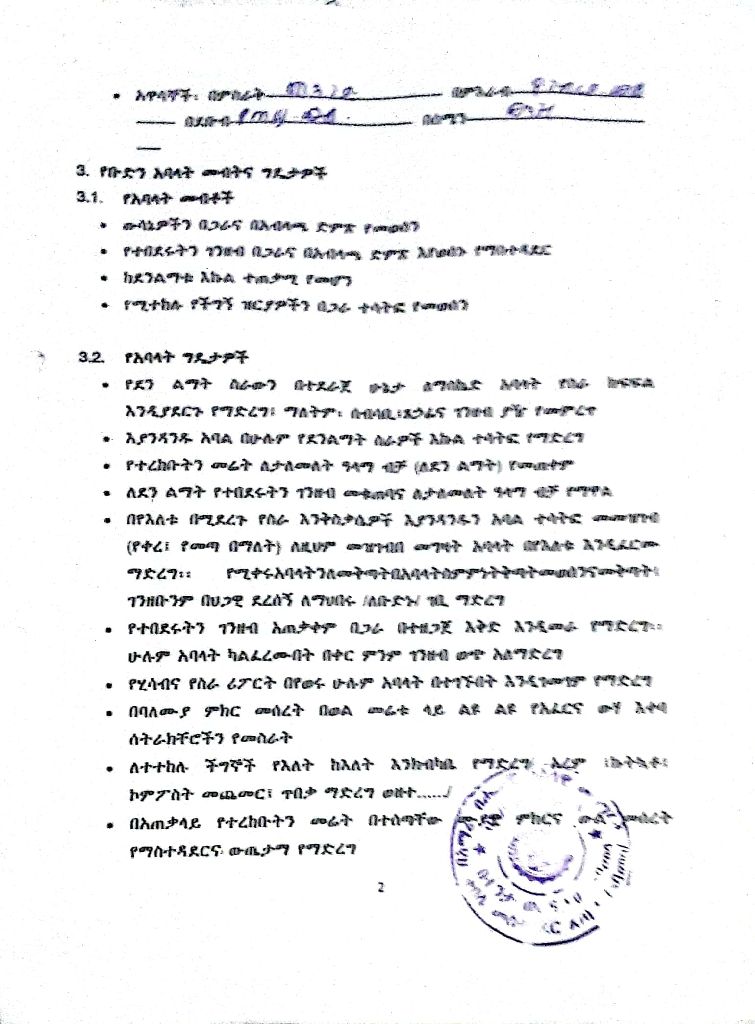 • አዋሳኞች፡ በምስራቅ መንገድ በምእራብ
በደቡብ በሰሜን
3. የቡድን አባላት መብትና ግዴታዎች
3.1. የአባላት መብቶች
• ውሳኔዎችን በጋራና በአብላጫ ድምጽ የመወሰን
• የተበደሩትን ገንዘብ በጋራና በአብላጫ ድምጽ እየወሰኑ የማስተዳደር
• ከደንልማቱ እኩል ተጠቃሚ የመሆን
• የሚተከሉ የችግኝ ዝርያዎችን በጋራ ተሳትፎ የመወሰን
3.2. የአባላት ግዴታዎች
• የደን ልማት ስራውን በተደራጀ ሁኔታ ለማስኬድ አባላት የስራ ክፍፍል
እንዲያደርጉ የማድረግ፤ ማለትም፡ ሰብሳቢ፡ጸኃፊና ገንዘብ ያዥ የመምረጥ
• እያንዳንዱ አባል በሁሉም የደንልማት ስራዎች እኩል ተሳትፎ የማድረግ
• የተረከቡትን መሬት ለታለመለት ዓላማ ብቻ (ለደን ልማት) የመጠቀም
• ለደን ልማት የተበደሩትን ገንዘብ መቁጠባና ለታለመለት ዓላማ ብቻ የማዋል
• በየእለቱ በሚደረጉ የስራ እንቅስቃሴዎች እያንዳንዱን አባል ተሳትፎ መመዝገብ
(የቀረ፤ የመጣ በማለት) ለዚህም መዝገብበ መግዛት አባላት በየእለቱ እንዲፈርሙ
ማድረግ፡፡ የሚቀሩአባላትንለመቅጣትበአባላትስምምነትቅጣትመወሰንናመቅጣት፤
ገንዘቡንም በህጋዊ ደረሰኝ ለማህበሩ /ለቡድኑ/ ገቢ ማድረግ
• የተበደሩትን ገንዘብ አጠቃቀም በጋራ በተዘጋጀ እቅድ እንዲመራ የማድረግ፡፡
ሁሉም አባላት ካልፈረሙበት በቀር ምንም ገንዘብ ወጭ አለማድረግ
• የሂሳብና የስራ ሪፖርት በየወሩ ሁሉም አባላት በተገኙበት እንዲገመገም የማድረግ
• በባለሙያ ምክር መሰረት በወል መሬቱ ላይ ልዩ ልዩ የአፈርና ውሃ እቀባ
ስትራክቸሮችን የመስራት
• ለተተከሉ ችግኞች የእለት ከእለት እንክብካቤ የማድረግ/ አረም ፤ኩትኳቶ፤
ኮምፖስት መጨመር፤ ጥበቃ ማድረግ ወዘተ....../
• በአጠቃላይ የተረከቡትን መሬት በተሰጣቸው ምክርና ውል መሰረት
የማስተዳደርና ውጤታማ የማድረግ
2